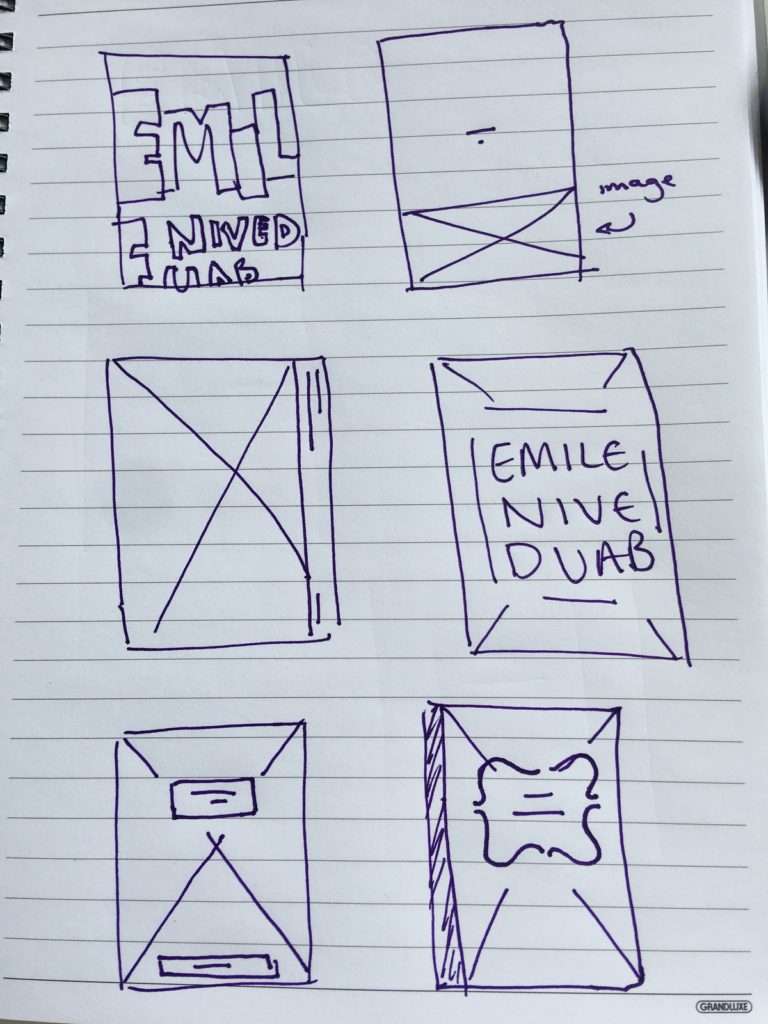 EMIL
E NIVED
UAB
image
EMILE
NIVE
DUAB
GRANDLUXE